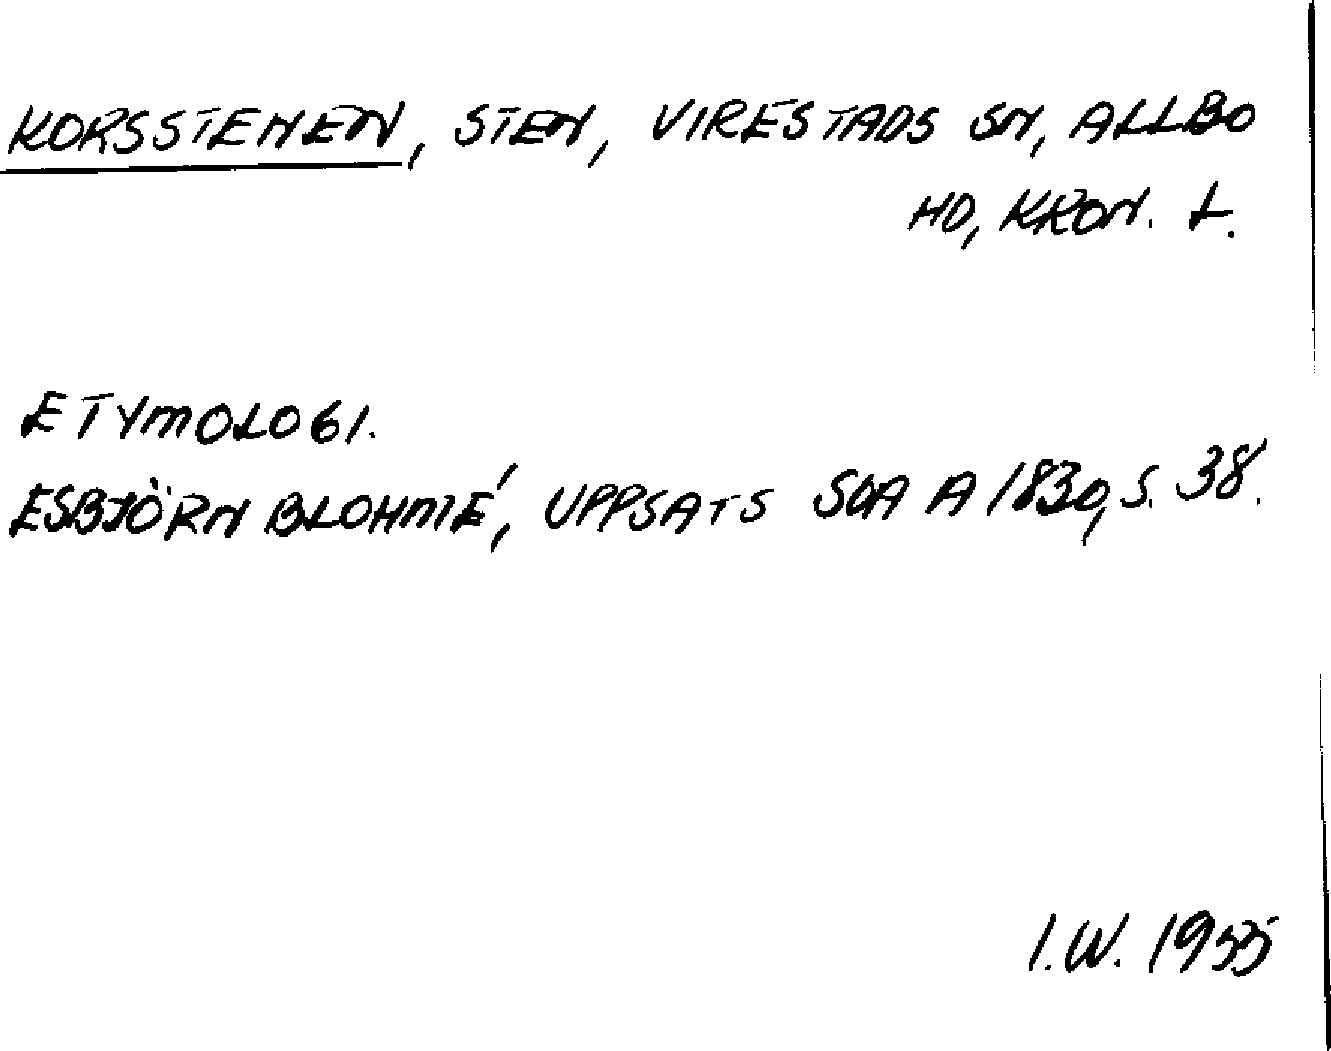 KORSSTENEN, STEN, VIRESTADS SN, ALLBO
HD, KRON. L.
ETYMOLOGI.
ESBJÖRN BLOHMÉ, UPPSATS SOA A 1830, S. 38.
I.W. 1955